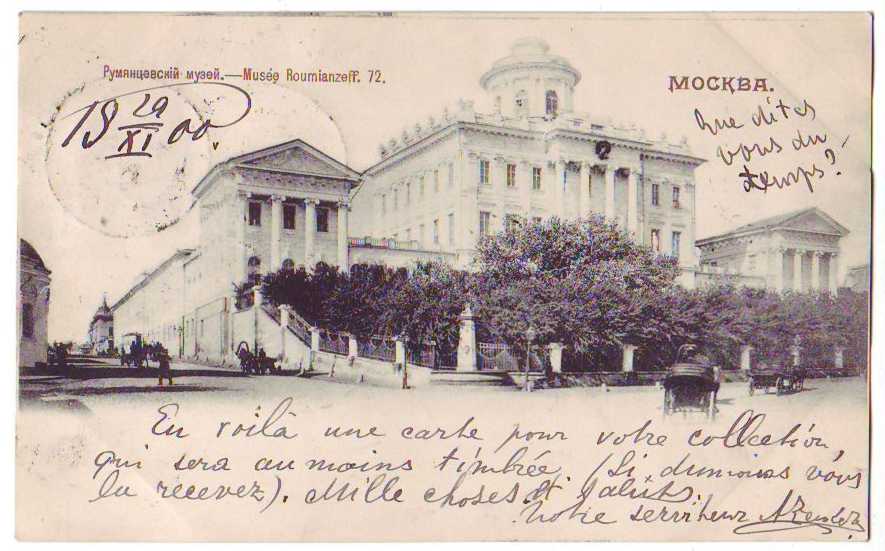 Румянцевскій музей.—Musée Roumianzeff. 72.
МОСКВА.
18 29/XI 00
Que dites
vous du
temps?
En voilà une carte pour votre collection
qui sera au moins timbrée (si du moins vous
la recevez). Mille choses et saluts.
Votre serviteur